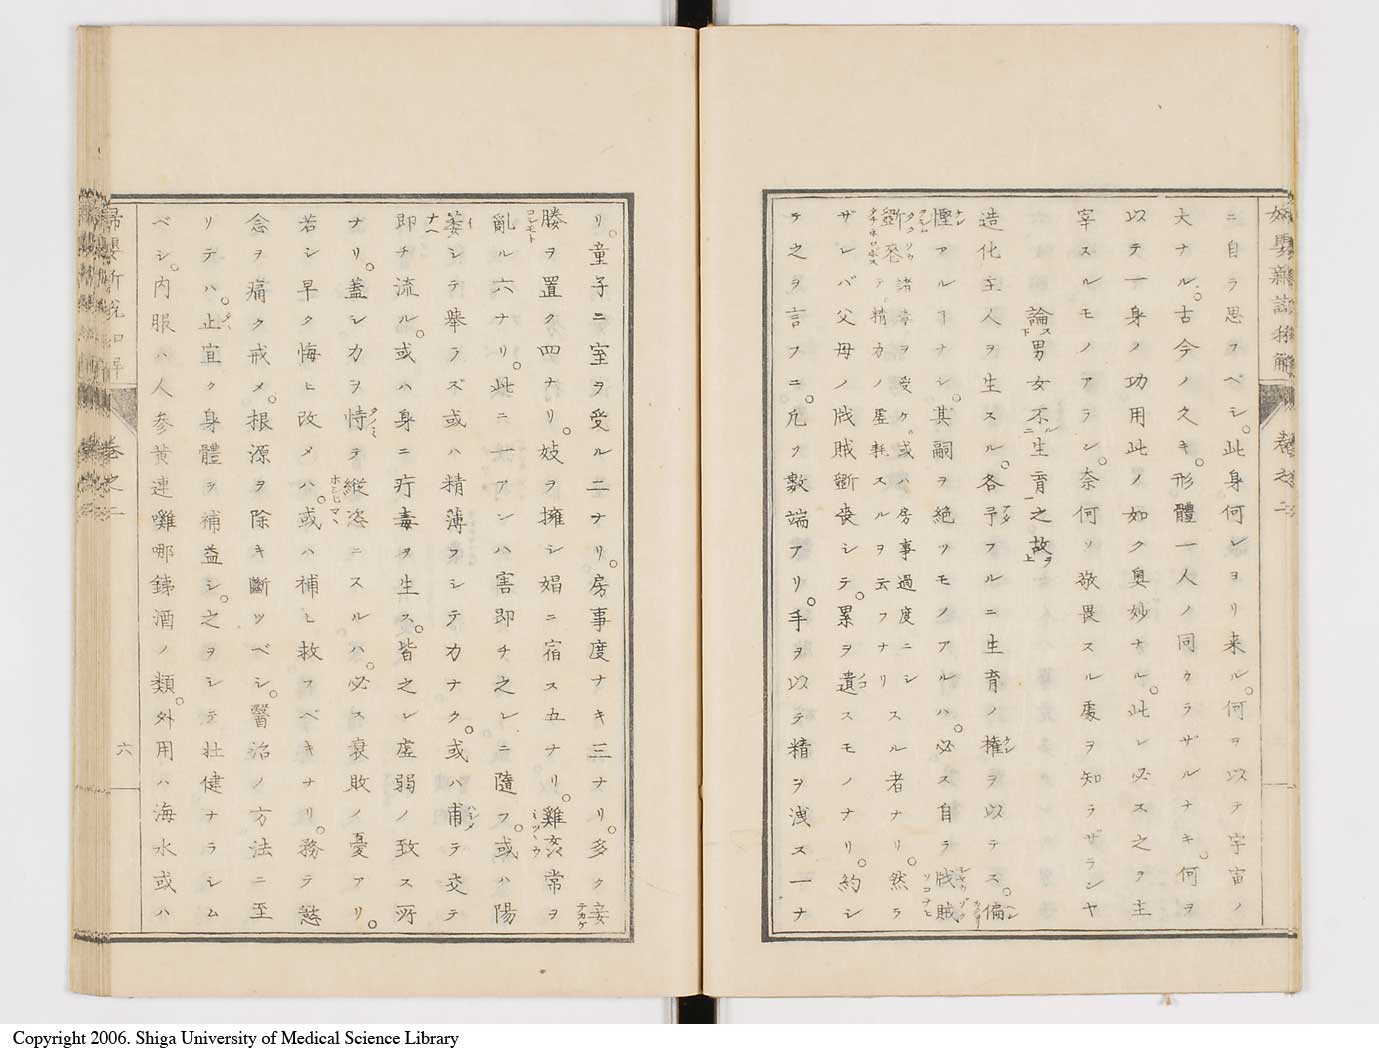 婦嬰新説和解 巻之二
ニ自ラ思フベシ。此身何レヨリ来ル。何ヲ以テ宇宙ノ
大ナル。古今ノ久キ。形體一人ノ同カラザルナキ。何ヲ
以テ一身ノ功用此ノ如ク奥妙ナル。此レ必ス之ヲ主
宰スルモノアラン。奈何ソ敬畏スル處ヲ知ラザランヤ
論ス下男女不ル二生育一之故ヲ上
造化主人ヲ生スル。各予フルニ生育ノ権ヲ以テス。偏
慳アルヿナシ。其嗣ヲ絶ツモノアルハ。必ス自ラ戕賊
斲喪諸毒ヲ受ケ。或ハ房事過度ニシテ精力ノ虚耗スルヲ云フナリスル者ナリ。然ラ
ザレバ父母ノ戕賊斲喪シテ。累ヲ遺スモノナリ。約シ
テ之ヲ言フニ。凢ソ數端アリ。手ヲ以テ精ヲ洩ス一ナ
リ。童子ニ室ヲ受ル二ナリ。房事度ナキ三ナリ。多ク妾
媵ヲ置ク四ナリ。妓ヲ擁シ娼ニ宿ス五ナリ。雞姦常ヲ
亂ル六ナリ。此ニ一アレハ害即チ之レニ隨フ。或ハ陽
萎シテ舉ラズ或ハ精薄フシテカナク。或ハ甫テ交テ
即チ流ル。或ハ身ニ疔毒ヲ生ス。皆之レ虚弱ノ致ス所
ナリ。蓋シカヲ恃テ縦恣ニスルハ。必ス衰敗ノ憂アリ。
若シ早ク悔ヒ改メハ。或ハ補ヒ救フベキナリ。務テ慾
念ヲ痛ク戒メ。根源ヲ除キ斷ツベシ。醫治ノ方法ニ至
リテハ。止宜ク身體ヲ補益シ。之ヲシテ壮健ナラシム
ベシ。内服ハ人参黄連囄哪銕酒ノ類。外用ハ海水或ハ
婦嬰新説和解 巻之二 六